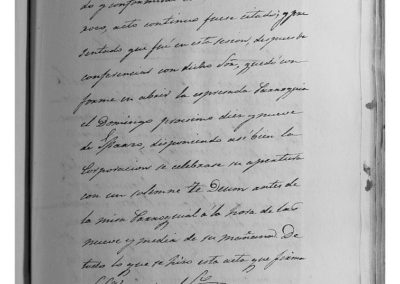 do y conforme
roco, acto continuo fuese citado; y pre
sentado que fué en esta sesion, despues de
conferenciar con dicho Sor, quedó con
forme en abrir la espresada Parroquia
el Domingo procsimo diez y nueve
de Enero, disponiendo asi bien la
Corporacion se celebrase su apertura
con un solemne te Deum antes de
la misa Parroquial á la hora de las
nueve y media de su mañana. De
todo lo que se hizo esta acta que firma